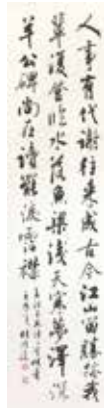 人事有代謝往来成古今江山留勝跡我
輩復登臨水落魚梁淺天寒夢澤深
羊公碑尚在讀罷淚沾襟